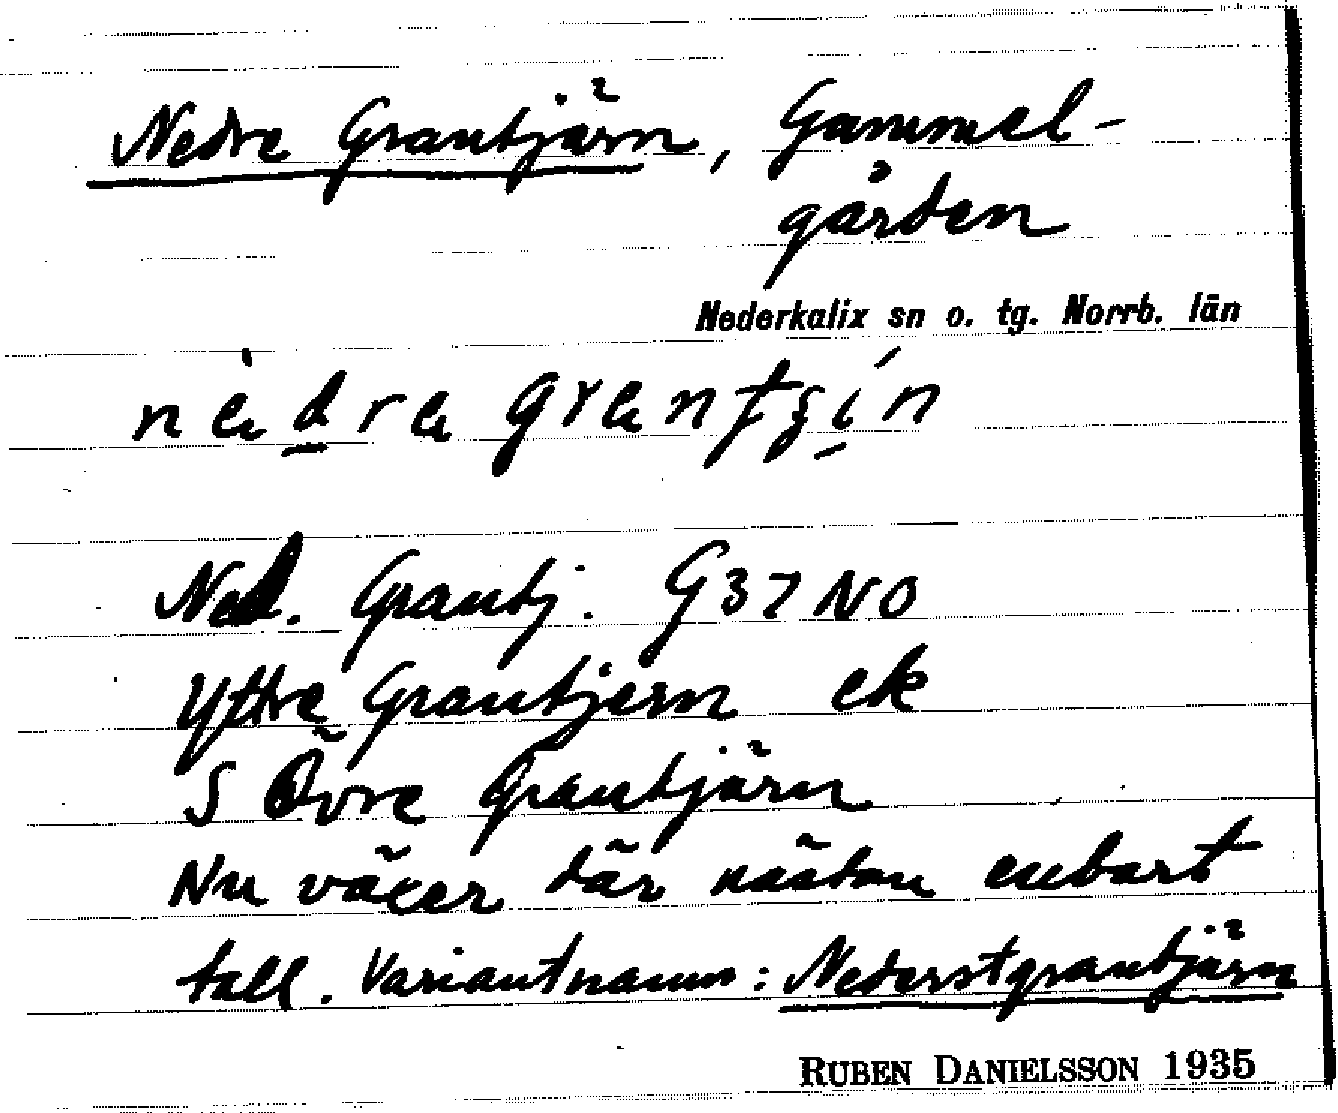 Nedre Grantjärn, Gammel-
gården
Nederkalix sn o. tg. Norrb. län
Ned. Grantj. G37NO
Yttre Grantjern ek
S Övre Grantjärn
Nu växer där nästan enbart
tall. Variantnamn: Nederstgrantjärn
RUBEN DANIELSSON 1935